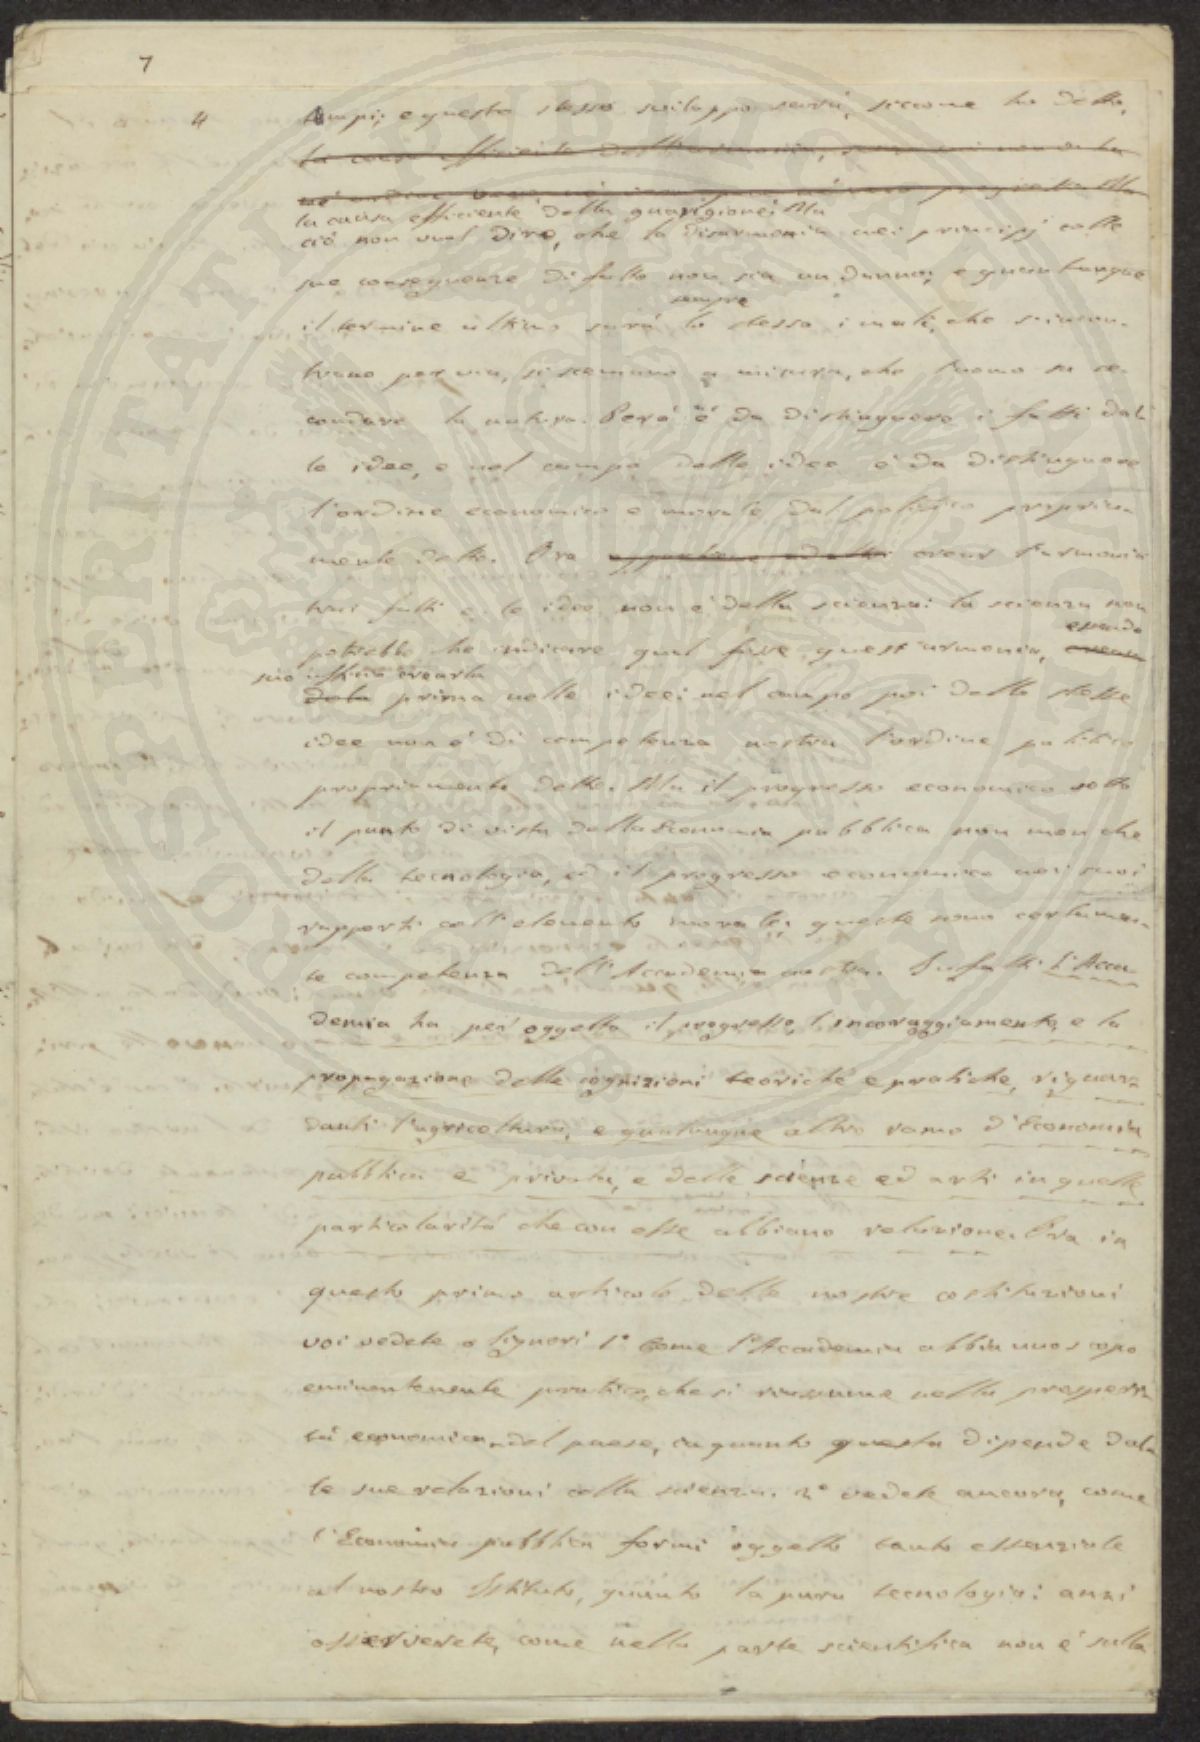 7
4
tempi; e questo stesso sviluppo sarà, siccome ho detto,
la causa efficiente dell'armonia,
la causa efficiente della guarigione. Ma
ciò non vuol dire, che la disarmonia nei principj colle
sue conseguenze di fatto non sia un danno; e quantunque
sempre
il termine ultimo sarà lo stesso i mali, che s'incon-
trano per via, si scemano a misura, che l'uomo sa se-
condare la natura. Però è da distinguere i fatti dal-
le idee, e nel campo delle idee è da distinguere
l'ordine economico e morale dal politico propria-
mente detto. Ora creare l'armonia
trai fatti e le idee non è della scienza: la scienza non
essendo
potrebbe che indicare qual fosse quest'armonia,
suo uffizio crearla
prima nelle idee: nel campo poi delle stesse
idee non è di competenza nostra l'ordine politico
propriamente detto. Ma il progresso economico sotto
il punto di vista della Economia pubblica non men che
della tecnologia, ed il progresso economico nei suoi
rapporti coll'elemento morale; queste sono certamen-
te competenza dell'Accademia nostra. Infatti l'Acca-
demia ha per oggetto il progresso, l'incoraggiamento, e la
propagazione delle cognizioni teoriche e pratiche, riguar-
danti l'agricoltura, e qualunque altro ramo d'Economia
pubblica e privata, e delle scienze ed arti in quelle
particolarità che con esse abbiano relazione. Ora in
questo primo articolo delle nostre costituzioni
voi vedete o Signori 1° Come l'Accademia abbia uno scopo
eminentemente pratico, che si riassume nella prosperi-
tà economica del paese, in quanto questa dipende dal-
le sue relazioni colla scienza. 2° vedete ancora, come
l'Economia pubblica formi oggetto tanto essenziale
al nostro Istituto, quanto la pura tecnologia: anzi
osserverete, come nella parte scientifica non è sulla